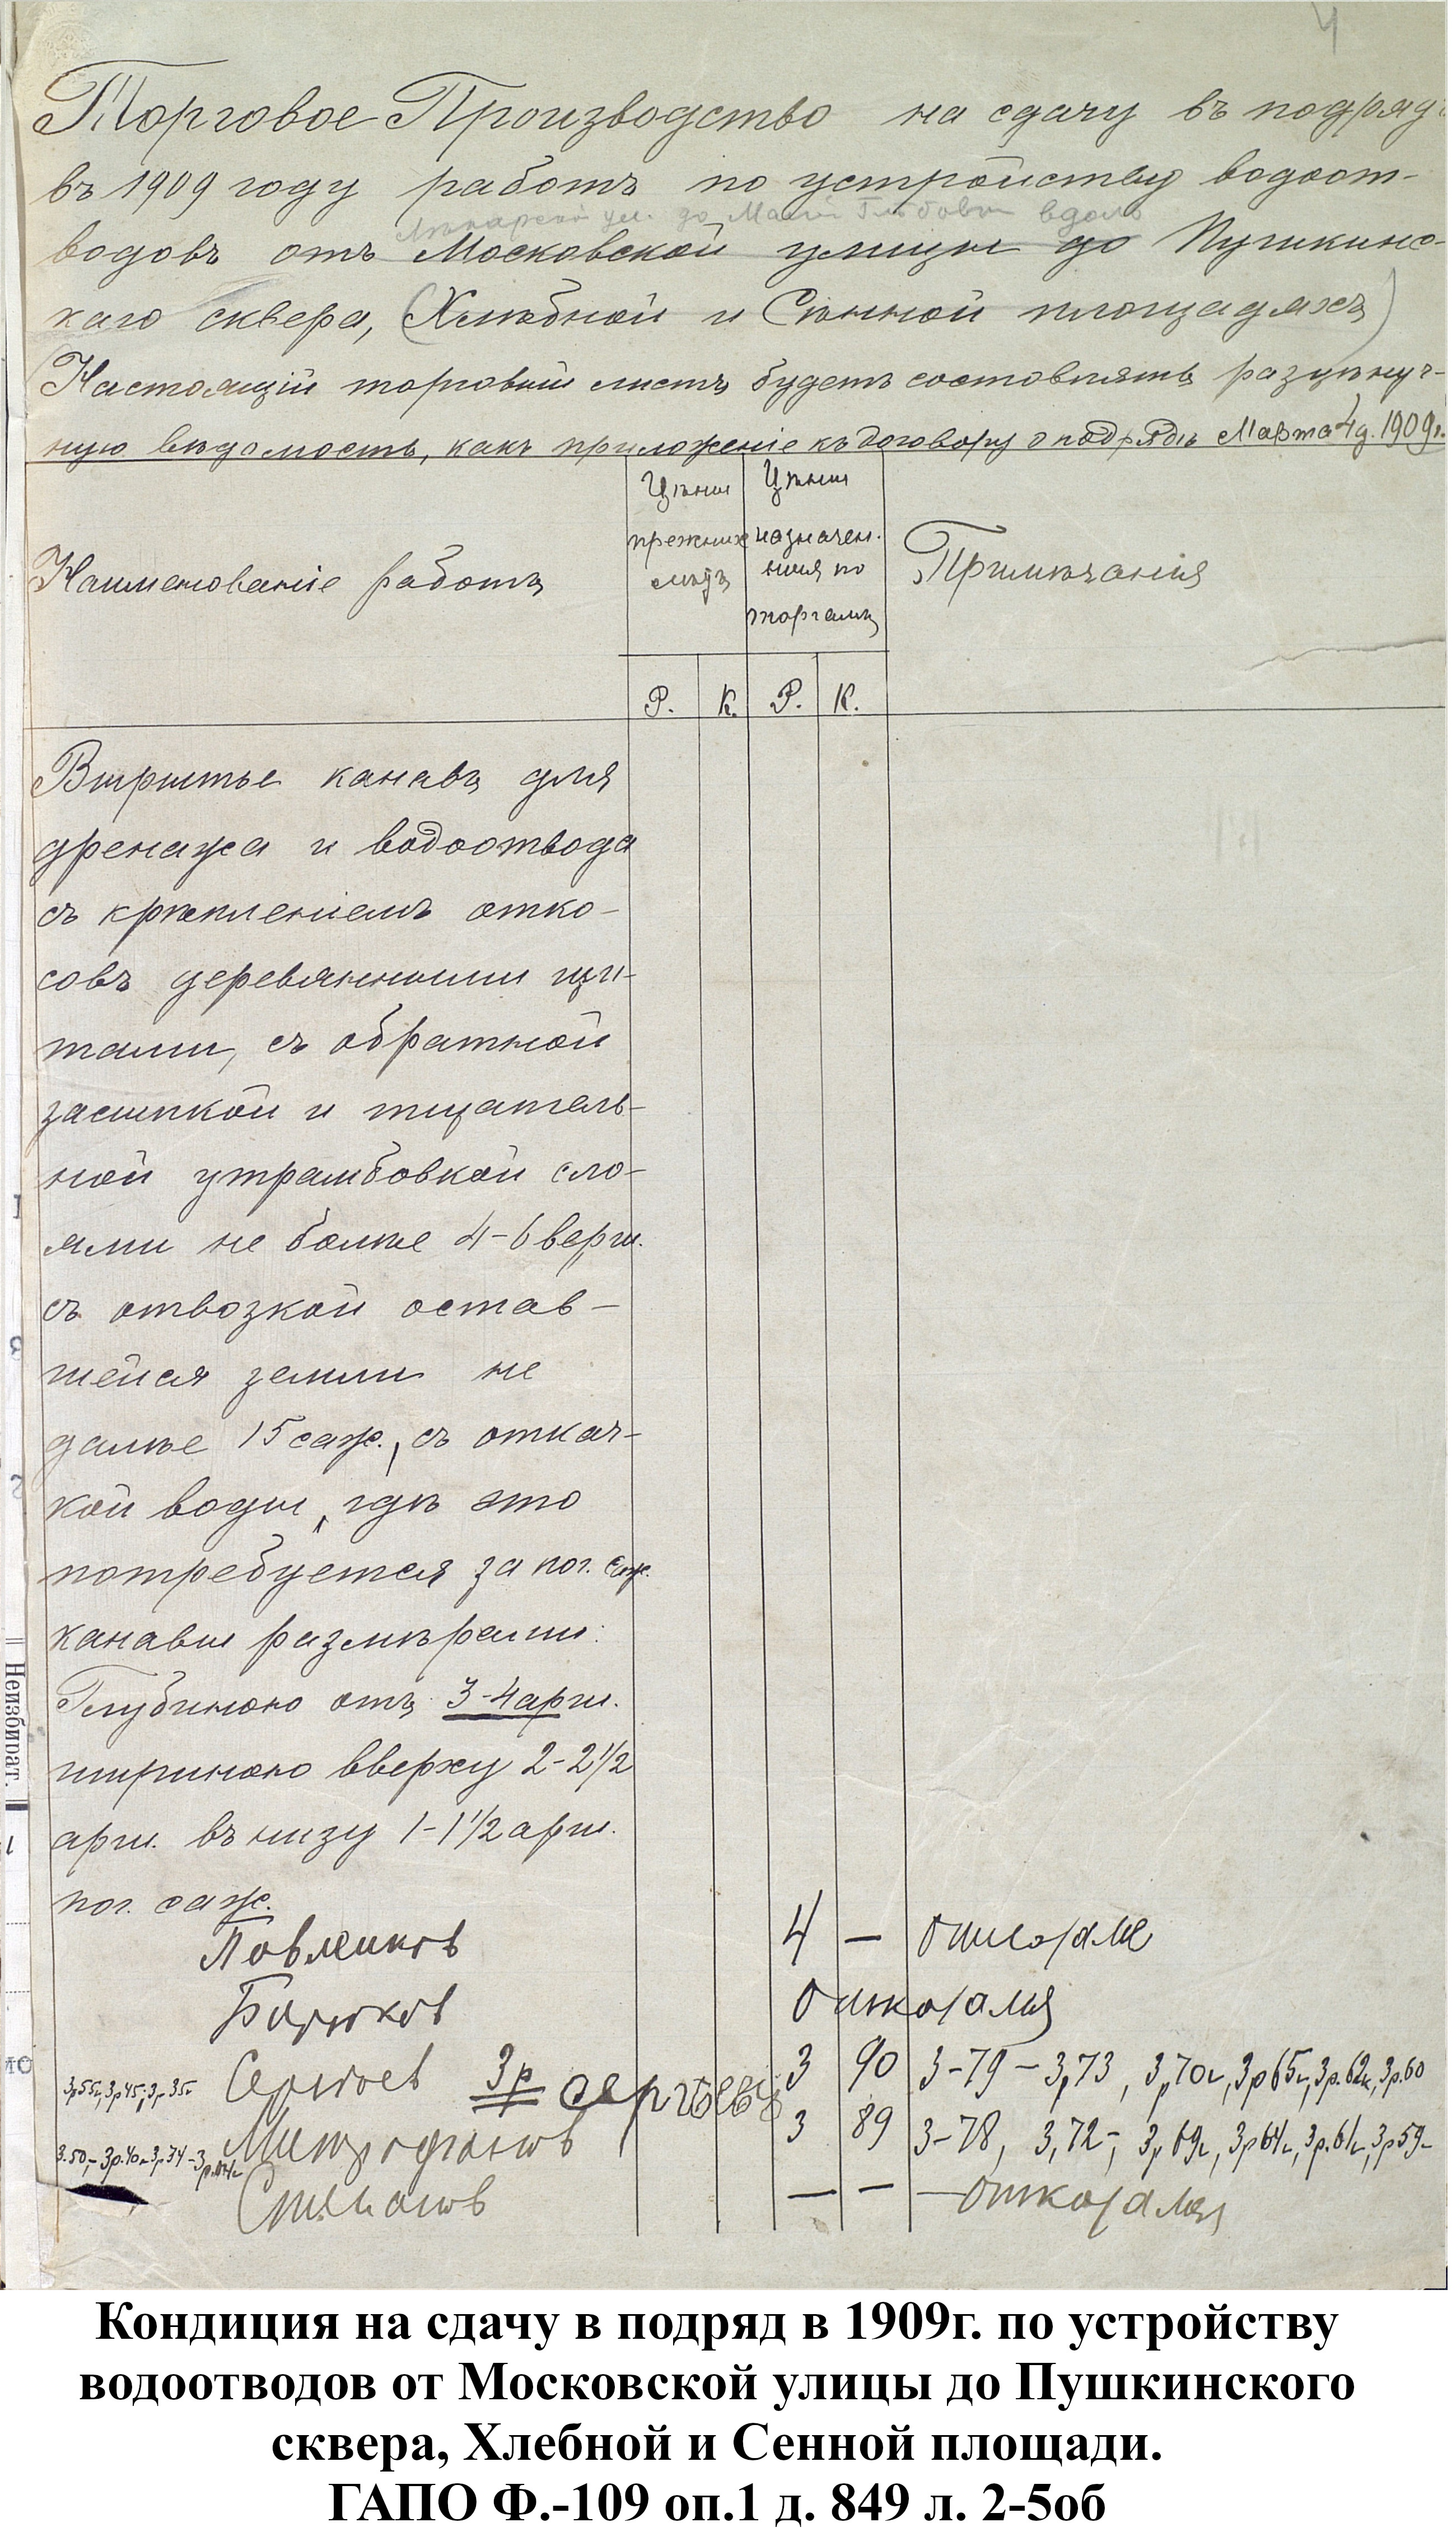 4
Торговое Производство на сдачу въ подряд
въ 1909 году работъ по устройству водоот-
Лекарской ул. до Малой Глѣбовки вдоль
водовъ отъ Московской улицы до Пушкинс-
каго сквера, (Хлѣбной и Сѣнной площадяхъ)
Настоящій торговый листъ будетъ составлять разцѣноч-
ную вѣдомость, какъ приложеніе къ договору о подрядѣ Марта 4 д. 1909 г.
Наименованіе работъ
Цѣны прежних смѣтъ
Цѣны назначен-ныя по торгамъ
Примѣчанія
Р. К. Р. К.
Вырытье канавъ для
дренажа и водоотвода
съ крѣпленіемъ отко-
совъ деревянными щи-
тами, съ обратной
засыпкой и тщатель-
ной утрамбовкой сло-
ями не болѣе 4-6 верш.
съ отвозкой остав-
шейся земли не
далѣе 15 саж., съ откач-
кой воды, гдѣ это
потребуется за пог. саж.
канавы размѣрами:
Глубиною отъ 3-4 арш.
шириною вверху 2-2 1/2
арш. въ низу 1-1 1/2 арш.
пог. саж.
4 —
отказался
3 90 3-79 - 3,73, 3р70к, 3р65к, 3р.62к, 3р.60
Сергѣев 3р Сергѣевъ
3р55к, 3р45, 3р35к
Митрофанов 3 89 3-78, 3,72-, 3р69к, 3р64к, 3р.61к, 3р59-
3.50,- 3р.40к
Степанов — — — отказался
Неизбират.
Кондиция на сдачу в подряд в 1909г. по устройству
водоотводов от Московской улицы до Пушкинского
сквера, Хлебной и Сенной площади.
ГАПО Ф.-109 оп.1 д. 849 л. 2-5об